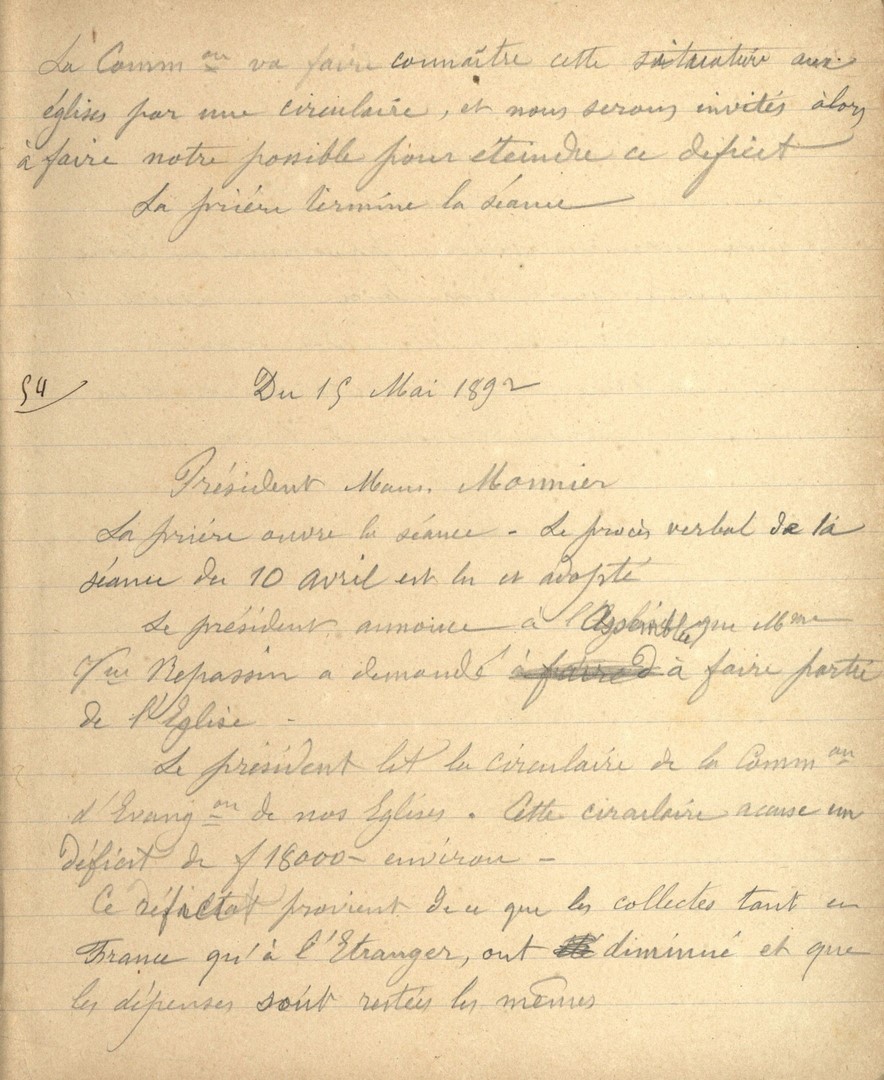 La Comm on va faire connaître cette situation aux
églises par une circulaire, et nous serons invités alors
à faire notre possible pour éteindre ce deficit
La prière termine la séance
54
Du 15 Mai 1892
Président Mons. Monnier
La prière ouvre la séance - Le procès verbal de la
séance du 10 avril est lu et adopté
Le président annonce à l'Assemblée que Mme
Vve Repassin a demandé à faire partie
de l'Eglise -
Le président lit la circulaire de la Comm on
d'Evang on de nos Eglises. Cette circulaire accuse un
déficit de f 18000 - environ -
Ce résultat provient de ce que les collectes tant en
France qu'à l'Etranger, ont diminué et que
les dépenses sont restées les mêmes